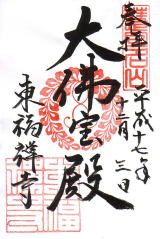 奉拝
平成十七年
十二月三日
大佛宝殿
東福禅寺